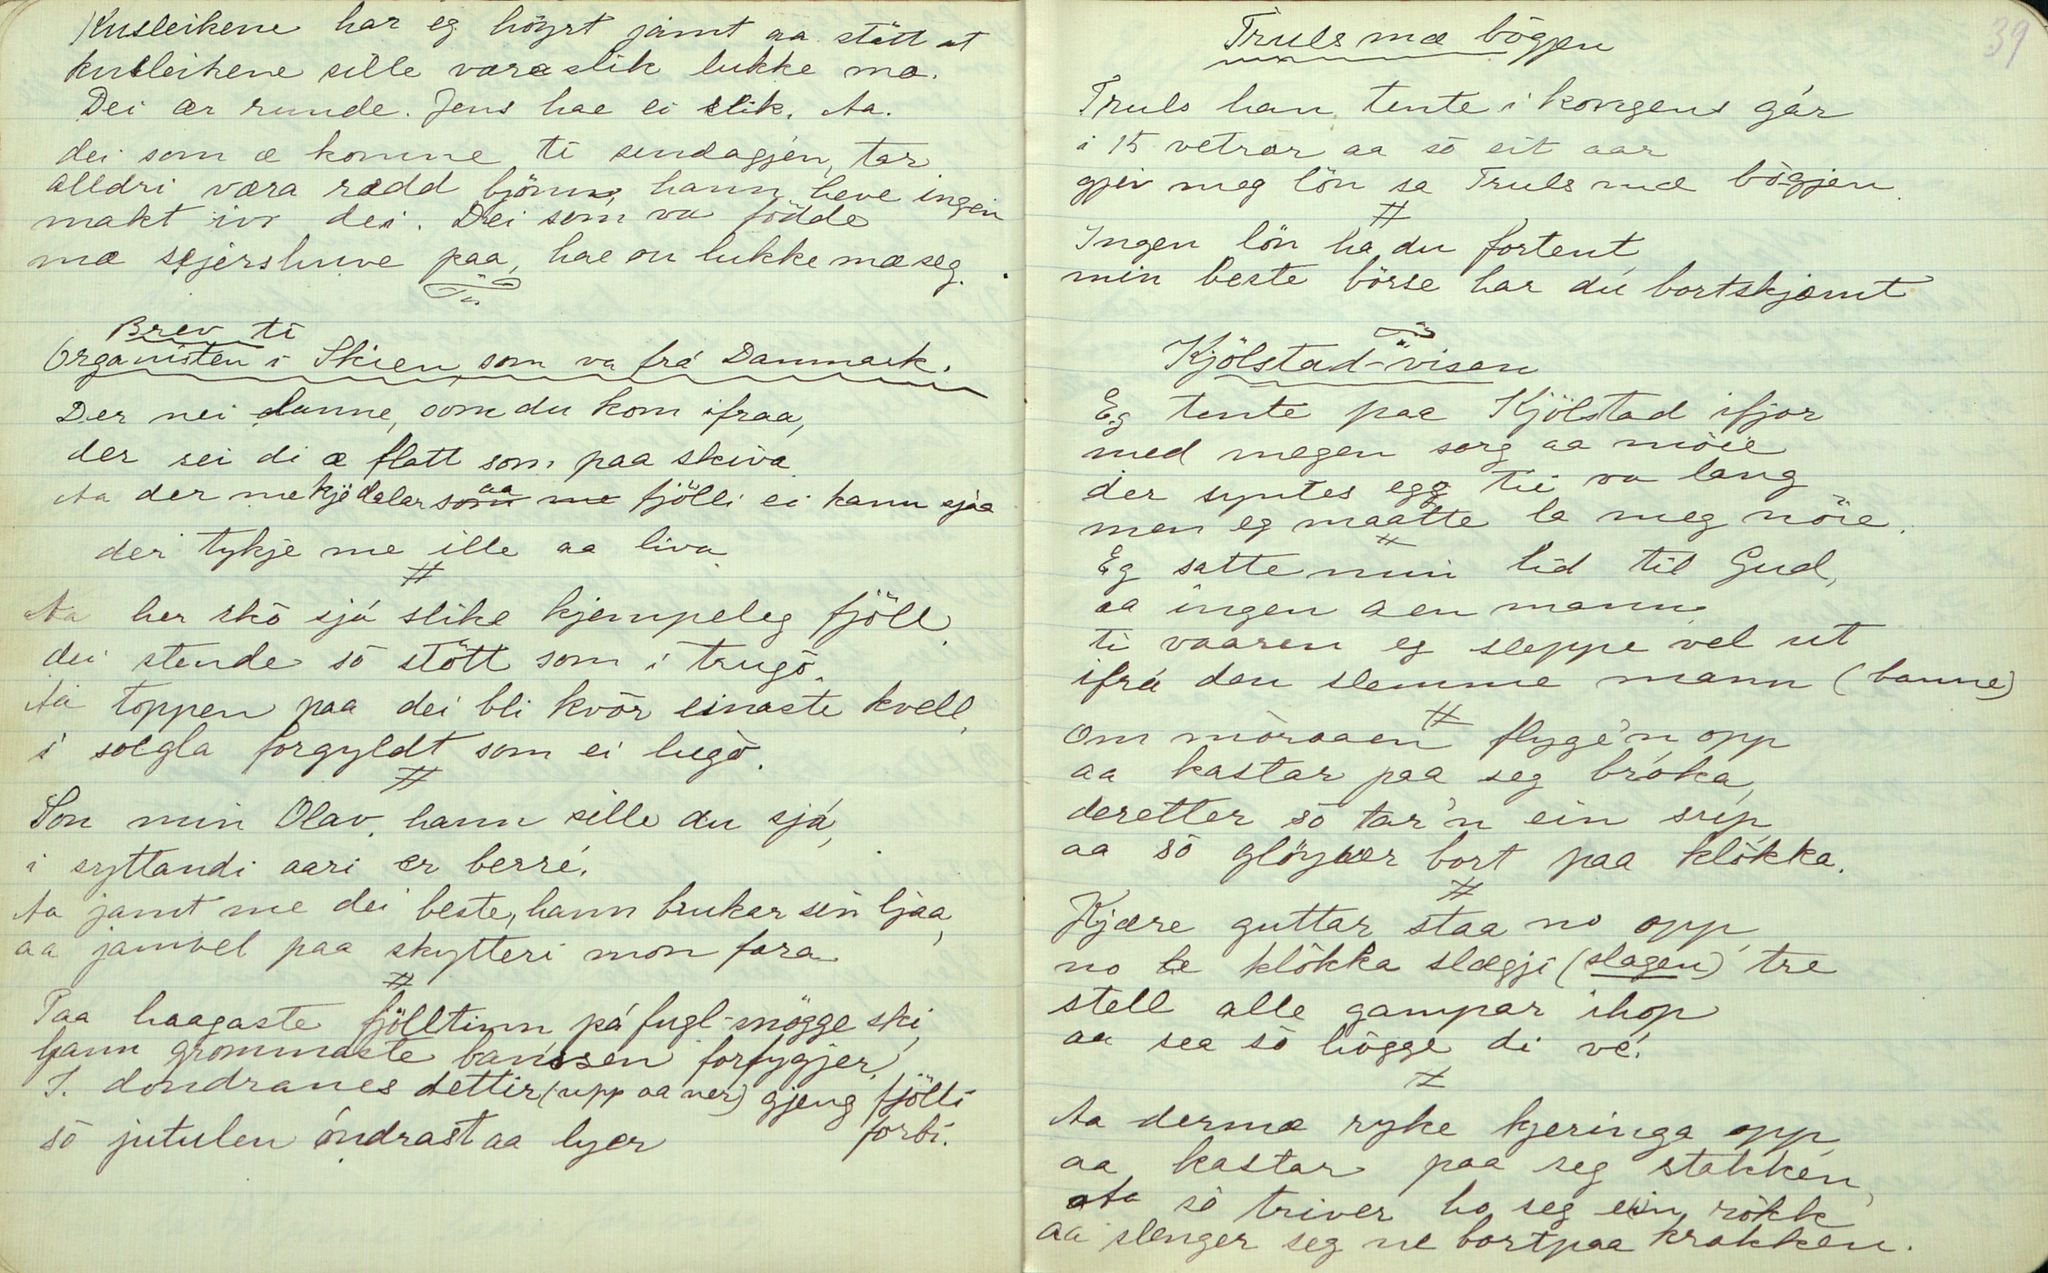 Knsleikene har eg höyrt jamt aa stött at
knsleikene sille vera slik lukke mæ.
Dei ær runde. Jens hae ei slik. Aa.
dei som æ komne ti sundagjen, tar
alldri væra rædd björnn, hann heve ingin
makt ivr dei. Dei som va födde
mæ sejershuve paa, hae ou lukke mæ seg.
Brev ti
Organisten i Skien, som va frá Danmark.
Der nei danne, som du kom ifraa,
der sei di æ flatt som paa skiva
Aa der me kje dalar som me aa fjölli ei kann sjaa
der tykje me ille aa liva
#
Aa her skò sjá slike kjempeleg fjöll
dei stende sò stött som i trugò.
Aa toppen paa dei bli kvòr einaste kvell,
i solgla forgyldt som ei hugò.
#
Son min Olav, hann sille du sjá,
i syttandi aari er berre.
Aa jamt me dei beste, hann brukar sin ljaa,
aa jamvel paa skytteri mon fara
#
Paa haagaste fjölltinn pá fugl-snögge ski,
hann grommaste bamsen forfygjer.
I. dondranes dettir (upp aa ner) gjeng fjölli
forbi.
sò jutulen óndrast aa lyer
39
Truls mæ bögjen
Truls han tente i kongens gár
i 15 vetrar aa sò eit aar
gjev meg lön sa Truls mæ bögjen
#
Ingen lön ha du fortent
min beste börse har du bortskjæmt
Kjölstad-visen
Eg tente paa Kjölstad ifjor
med megen sorg aa möie
der syntes egg tii va lang
men eg maatte la meg nöie.
#
Eg satte min lid til Gud,
aa ingen aen mann
ti vaaren eg sleppe vel ut
ifrá den slemme mann (banne)
#
Om mòraaen flyge'n opp
aa kastar paa seg bróka,
deretter sò tar'n ein sup
aa sò glöymer bort paa klòkka.
#
Kjære guttar staa no opp
no le klòkka slægji (slagen) tre
stell alle gampar ihop
aa sea sò hògge di vé.
#
Aa dermæ ryke kjeringa opp
aa kastar paa seg stakken,
Aa sò triver ho seg ein ròkk
aa slenger seg ne bortpaa krakken.